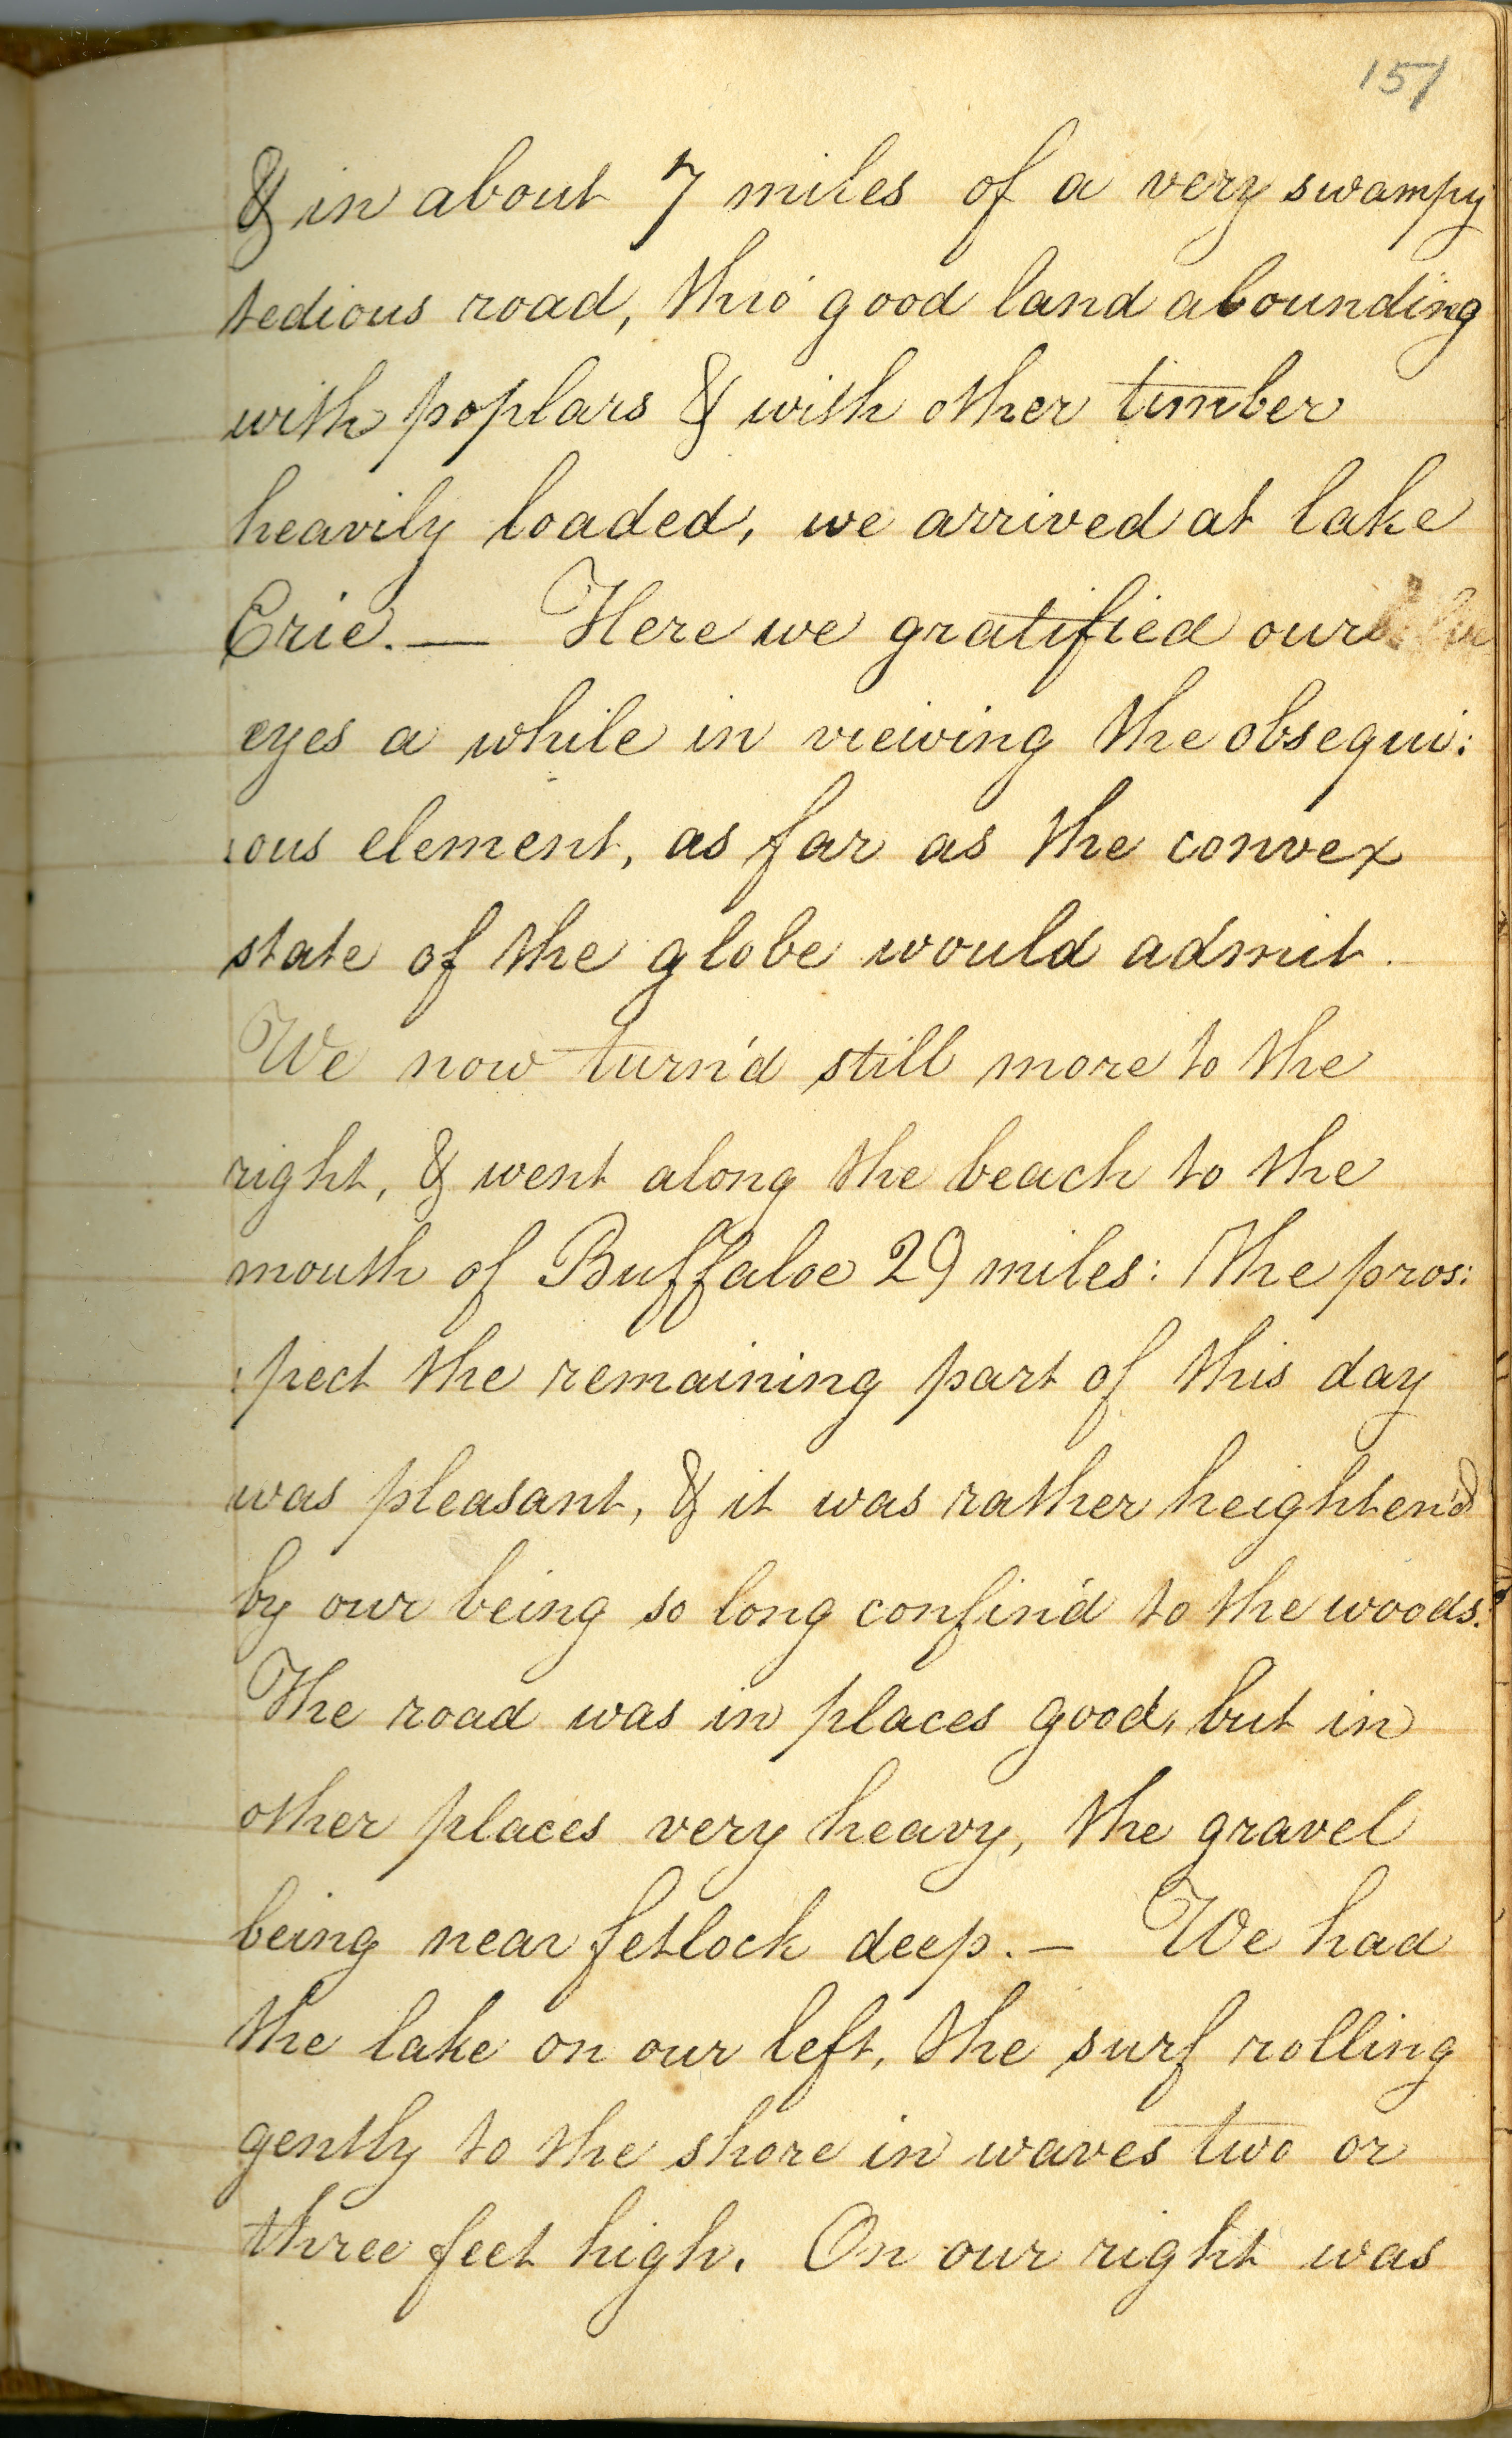 151
& in about 7 miles of a very swampy
tedious road, thro' good land abounding
with poplars & with other timber
heavily loaded, we arrived at lake
Erie. — Here we gratified our
eyes a while in viewing the obsequi:
:ous element, as far as the convex
state of the globe would admit.
We now turn'd still more to the
right, & went along the beach to the
mouth of Buffaloe 29 miles: The pros:
:pect the remaining part of this day
was pleasant, & it was rather heighten'd
by our being so long confin'd to the woods.
The road was in places good, but in
other places very heavy, the gravel
being near fetlock deep. — We had
the lake on our left, the surf rolling
gently to the shore in waves two or
three feet high. On our right was